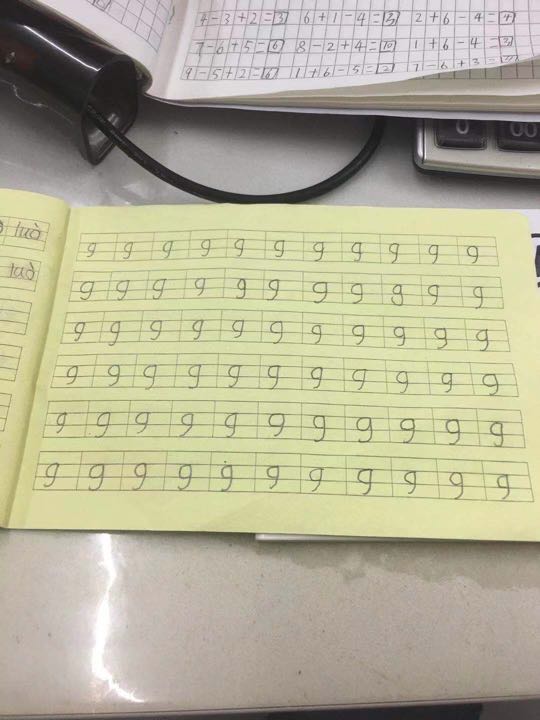 4-3+2=3 6+1-4=3 2+6-4=4
7-6+5=6 8-2+4=10 1+6-4=3
9-5+2=6 1+6-5=2 7-6+3=
0 00
luò
luò
g g g g g g g g g g g
g g g g g g g g g g g
g g g g g g g g g g g
g g g g g g g g g g g
g g g g g g g g g g g
g g g g g g g g g g g